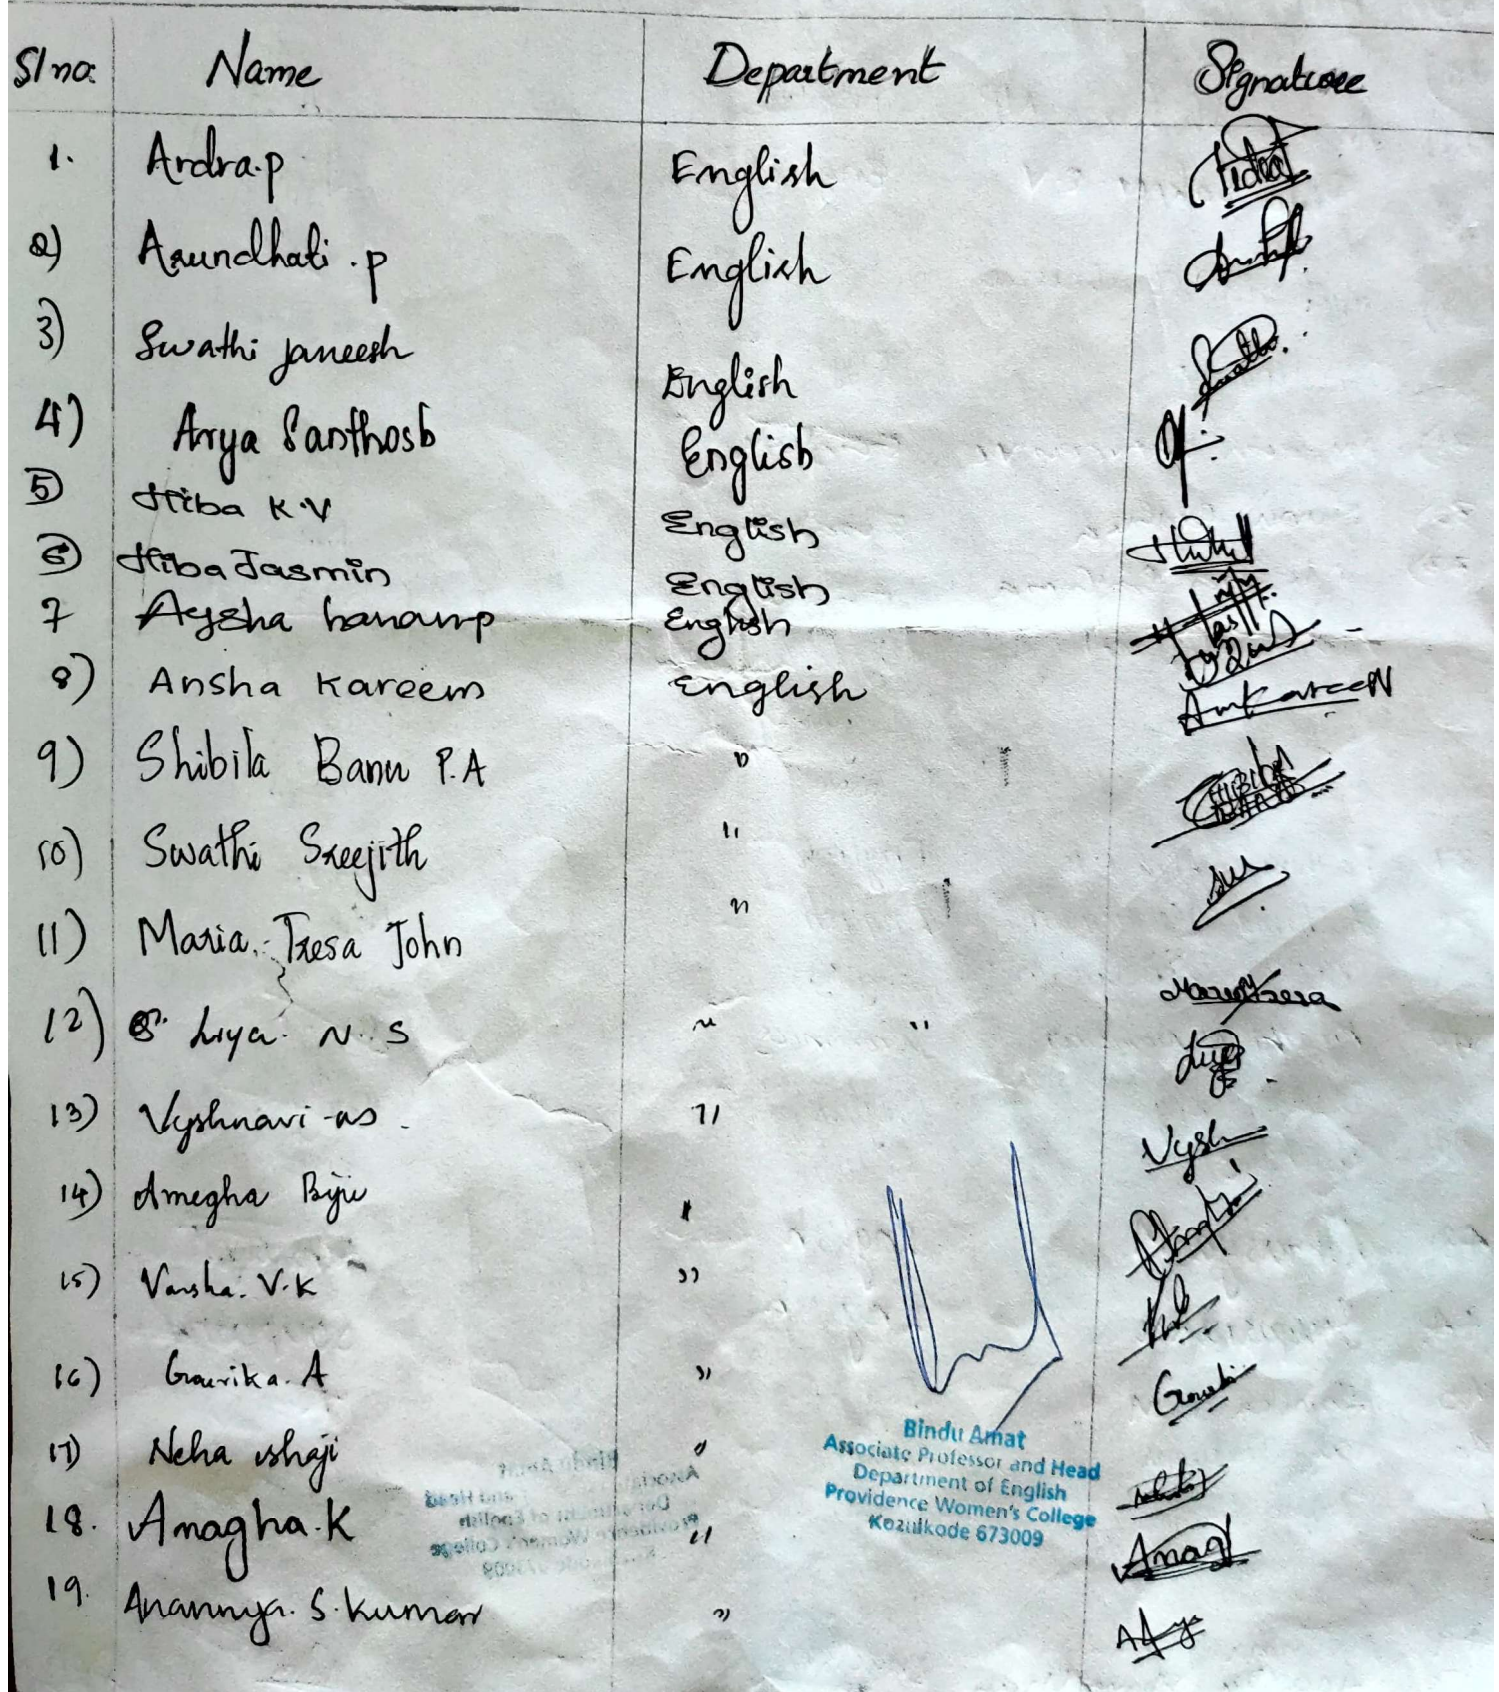 Sl no: Name Department Signature
1. Ardra.p English
2) Arundhati .p English
3) Swathi janeesh English
4) Arya Santhosh English
5) Hiba K.V English
6) Hiba Jasmin English
7 Aysha hanan.p English
8) Ansha Kareem English AmKareeN
9) Shibila Banu P.A "
10) Swathi Sreejith "
11) Maria Tresa John "
12) Liya N.S " "
13) Vyshnavi " Vysh
14) Amegha Biju "
15) Varsha. V.K "
16) Gourika. A "
17) Neha shaji "
18. Anagha.K "
19. Anannya. S. Kumar "
Bindu Amat
Associate Professor and Head
Department of English
Providence Women's College
Kozhikode 673009